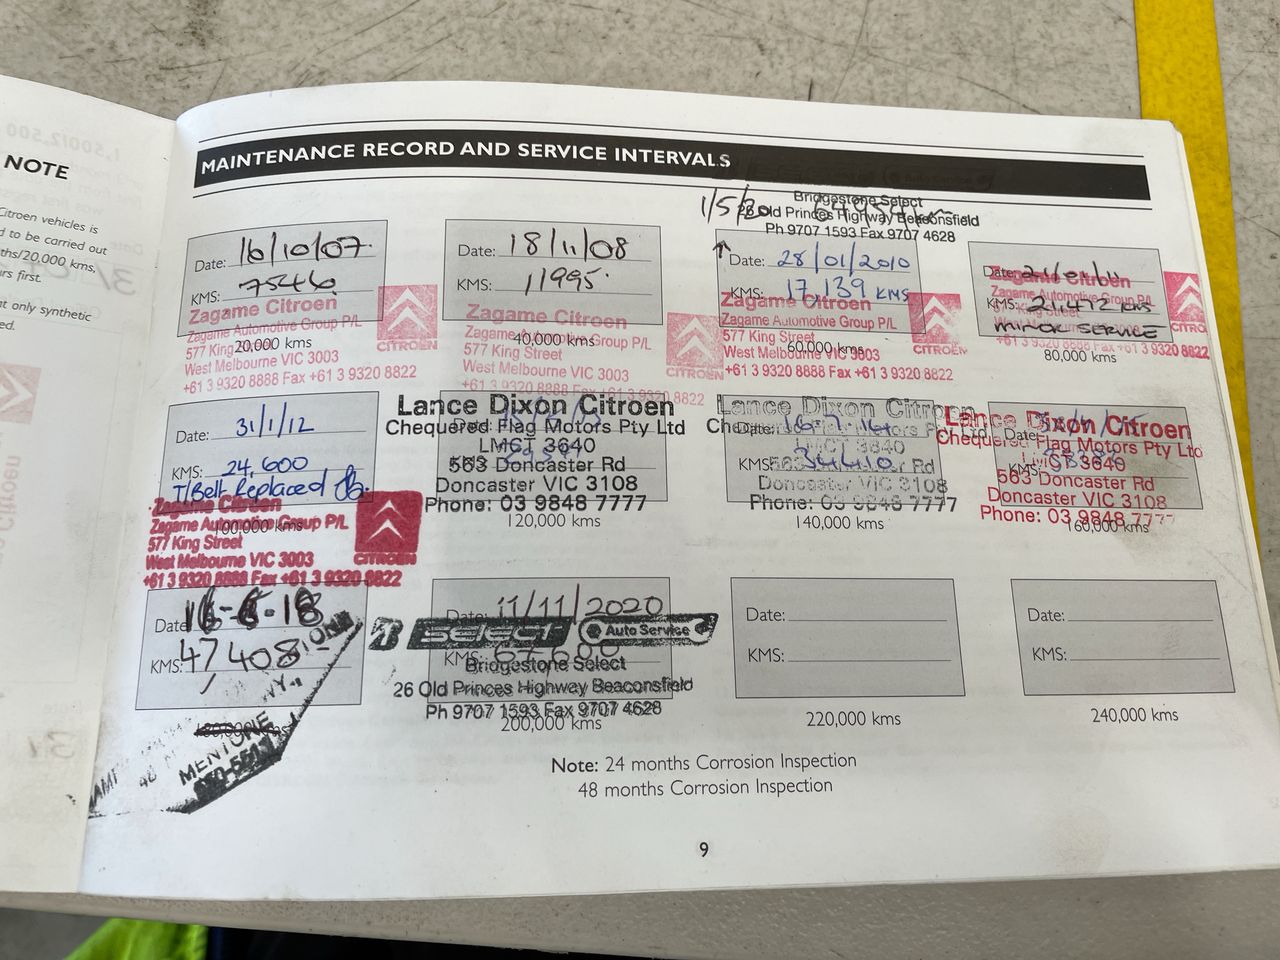 NOTE
Citroen vehicles is
to be carried out
20,000 kms,
first.
only synthetic
MAINTENANCE RECORD AND SERVICE INTERVALS
1/5/20
Bridgestone Select
26 Old Princes Highway Beaconsfield
Ph 9707 1593 Fax 9707 4628
Date: 16/10/07
KMS: 7546
Zagame Citroen
Zagame Automotive Group P/L
577 King Street
20,000 kms
West Melbourne VIC 3003
+61 3 9320 8888 Fax +61 3 9320 8822
CITROËN
Date: 18/11/08
KMS: 11995
Zagame Citroen
Zagame Automotive Group P/L
40,000 kms
577 King Street
West Melbourne VIC 3003
+61 3 9320 8888 Fax +61 3 9320 8822
CITROËN
Date: 28/01/2010
KMS: 17,139 KMS
Zagame Citroen
Zagame Automotive Group P/L
577 King Street
60,000 kms
West Melbourne VIC 3003
+61 3 9320 8888 Fax +61 3 9320 8822
CITROËN
Date:
Zagame Citroen
Zagame Automotive Group P/L
KMS: 21,472 KMS
MINOR SERVICE
Fax +61 3 9320 8822
80,000 kms
Date: 31/1/12
KMS: 24,600
T/Belt Replaced
Zagame Citroen
Zagame Automotive Group P/L
100,000 kms
577 King Street
West Melbourne VIC 3003
+61 3 9320 8888 Fax +61 3 9320 8822
CITROËN
Lance Dixon Citroen
Chequered Flag Motors Pty Ltd
LMCT 3640
563 Doncaster Rd
Doncaster VIC 3108
Phone: 03 9848 7777
120,000 kms
Lance Dixon Citroen
Date: 16-7-14
LMCT 3640
KMS: 34410
563 Doncaster Rd
Doncaster VIC 3108
Phone: 03 9848 7777
140,000 kms
Lance Dixon Citroen
Chequered Flag Motors Pty Ltd
Date:
LMCT 3640
KMS:
563 Doncaster Rd
Doncaster VIC 3108
Phone: 03 9848 7777
160,000 kms
Date: 16-6-18
KMS: 47,408
MENTONE
Date: 11/11/2020
SELECT Auto Service
KMS:
Bridgestone Select
26 Old Princes Highway Beaconsfield
Ph 9707 1593 Fax 9707 4628
200,000 kms
Date:
KMS:
220,000 kms
Date:
KMS:
240,000 kms
Note: 24 months Corrosion Inspection
48 months Corrosion Inspection
9